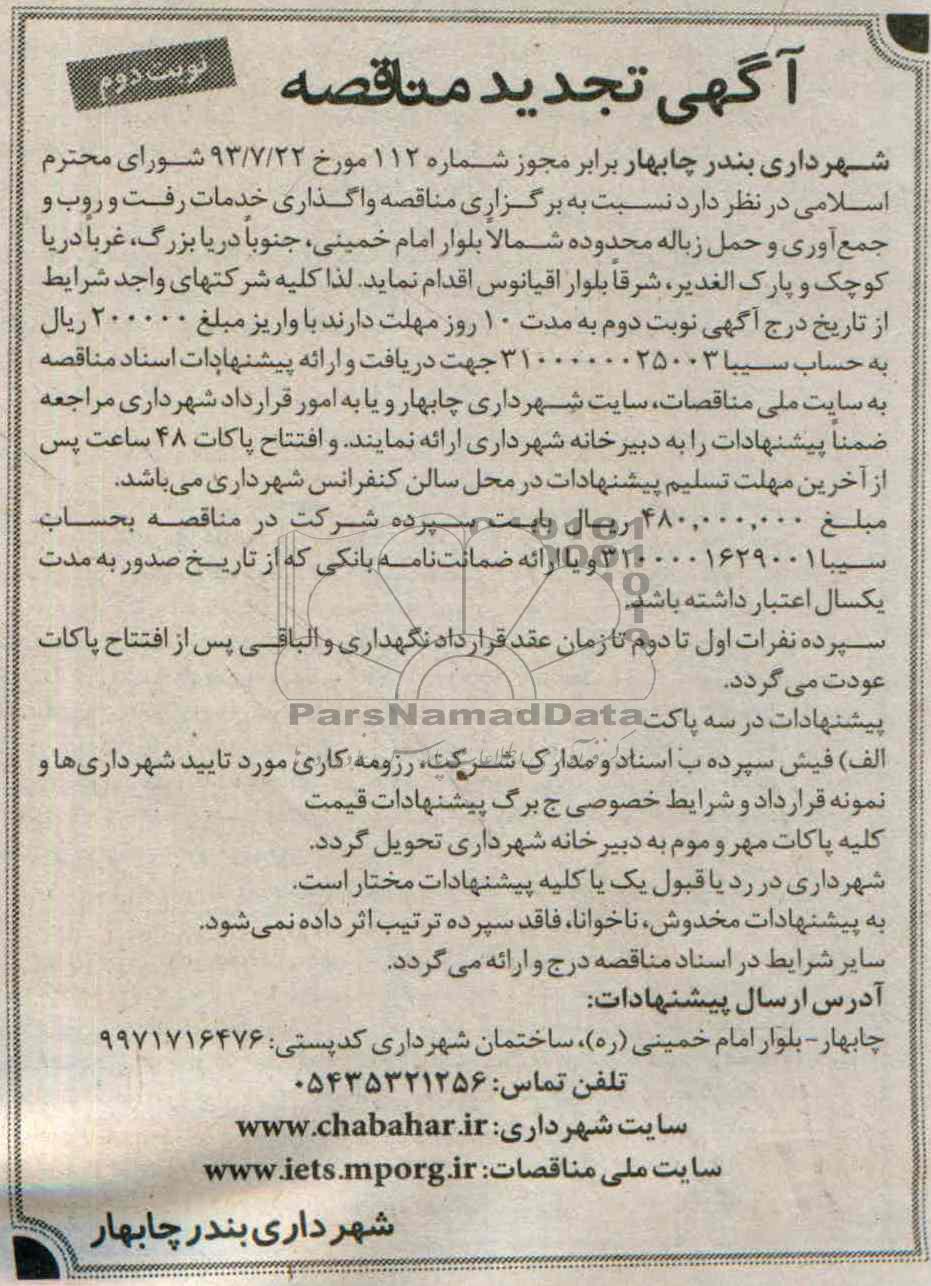 آگهی تجدید مناقصه
نوبت دوم
شهرداری بندر چابهار برابر مجوز شماره ۱۱۲ مورخ ۹۳/۷/۲۲ شورای محترم
اسلامی در نظر دارد نسبت به برگزاری مناقصه واگذاری خدمات رفت و روب و
جمع‌آوری و حمل زباله محدوده شمالاً بلوار امام خمینی، جنوباً دریا بزرگ، غرباً دریا
کوچک و پارک الغدیر، شرقاً بلوار اقیانوس اقدام نماید. لذا کلیه شرکتهای واجد شرایط
از تاریخ درج آگهی نوبت دوم به مدت ۱۰ روز مهلت دارند با واریز مبلغ ۲۰۰۰۰۰ ریال
به حساب سیبا ۳۱۰۰۰۰۰۰۲۵۰۰۳ جهت دریافت و ارائه پیشنهادات اسناد مناقصه
به سایت ملی مناقصات، سایت شهرداری چابهار و یا به امور قرارداد شهرداری مراجعه
ضمناً پیشنهادات را به دبیرخانه شهرداری ارائه نمایند. و افتتاح پاکات ۴۸ ساعت پس
از آخرین مهلت تسلیم پیشنهادات در محل سالن کنفرانس شهرداری می‌باشد.
مبلغ ۴۸۰,۰۰۰,۰۰۰ ریال بابت سپرده شرکت در مناقصه بحساب
سیبا ۳۱۰۰۰۰۱۶۲۹۰۰۱ و یا ارائه ضمانت‌نامه بانکی که از تاریخ صدور به مدت
یکسال اعتبار داشته باشد.
سپرده نفرات اول تا دوم تا زمان عقد قرارداد نگهداری و الباقی پس از افتتاح پاکات
عودت می گردد.
ParsNamadData
پیشنهادات در سه پاکت
الف) فیش سپرده ب اسناد و مدارک شرکت، رزومه کاری مورد تایید شهرداری‌ها و
نمونه قرارداد و شرایط خصوصی ج برگ پیشنهادات قیمت
کلیه پاکات مهر و موم به دبیرخانه شهرداری تحویل گردد.
شهرداری در رد یا قبول یک یا کلیه پیشنهادات مختار است.
به پیشنهادات مخدوش، ناخوانا، فاقد سپرده ترتیب اثر داده نمی‌شود.
سایر شرایط در اسناد مناقصه درج و ارائه می گردد.
آدرس ارسال پیشنهادات:
چابهار- بلوار امام خمینی (ره)، ساختمان شهرداری کدپستی: ۹۹۷۱۷۱۶۴۷۶
تلفن تماس: ۰۵۴۳۵۳۲۱۲۵۶
سایت شهرداری: www.chabahar.ir
سایت ملی مناقصات: www.iets.mporg.ir
شهرداری بندر چابهار